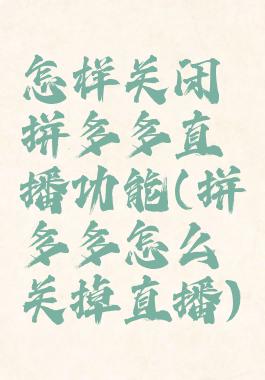 怎样关闭
拼多多直
播功能(拼
多多怎么
关掉直播)